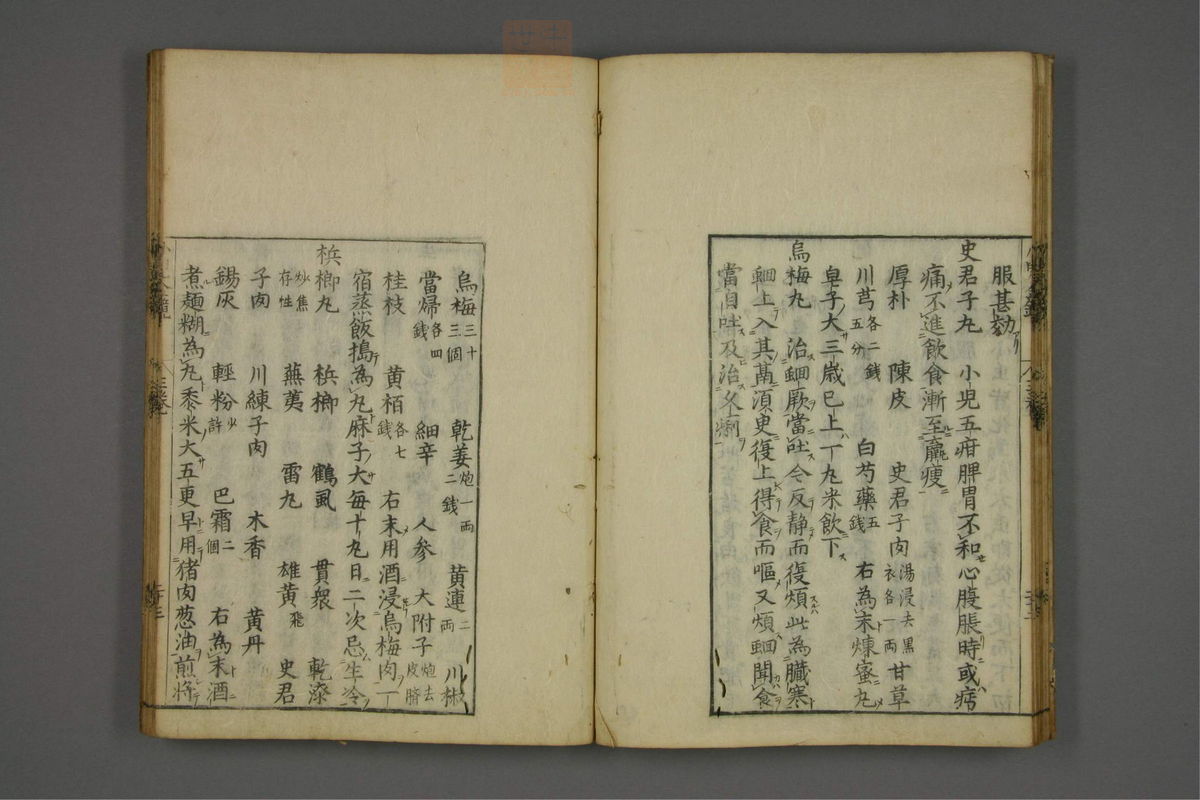 服甚効
史君子丸 小児五疳脾胃不和心腹脹時或㽲
痛不進飲食漸至羸瘦
厚朴 陳皮 史君子肉湯浸去黒衣各一両 甘草
川芎各二錢五分 白芍藥五錢 右為末煉蜜丸
皂子大三歳已上一丸米飲下
烏梅丸 治蛔厥當吐今反静而復煩此為臓寒
蛔上入其膈須臾復上得食而嘔又煩蛔聞食
當自吐及治久痢
烏梅三十三個 乾姜炮一両二錢 黄連二両 川椒
當帰各四錢 細辛 人参 大附子炮去皮臍
桂枝 黄栢各七錢 右末用酒浸烏梅肉一
宿蒸飯搗為丸麻子大毎十丸日二次忌生冷
梹榔丸 梹榔 鶴虱 貫衆 乾漆
炒焦存性 蕪荑 雷丸 雄黄飛 史君
子肉 川練子肉 木香 黄丹
錫灰 輕粉少許 巴霜二個 右為末酒
煮麺糊為丸黍米大五更早用猪肉葱油煎将